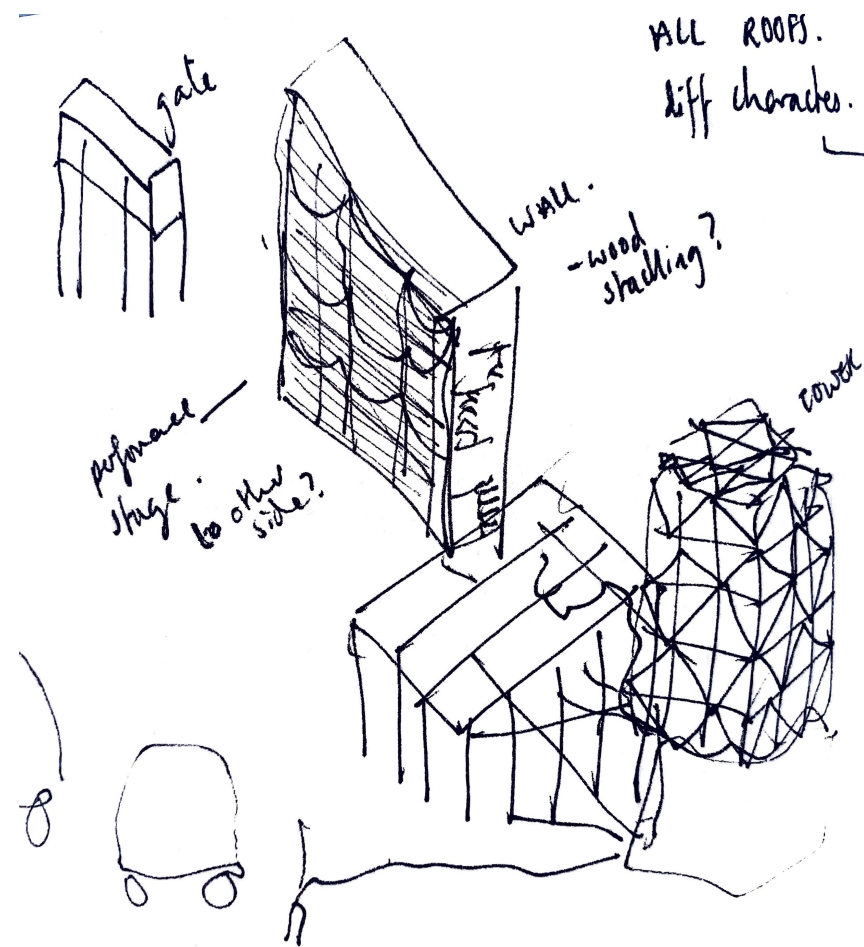 ALL ROOFS.
diff charactes.
gate
WALL.
- wood
stacking?
performance
stage.
to other
side?
tower